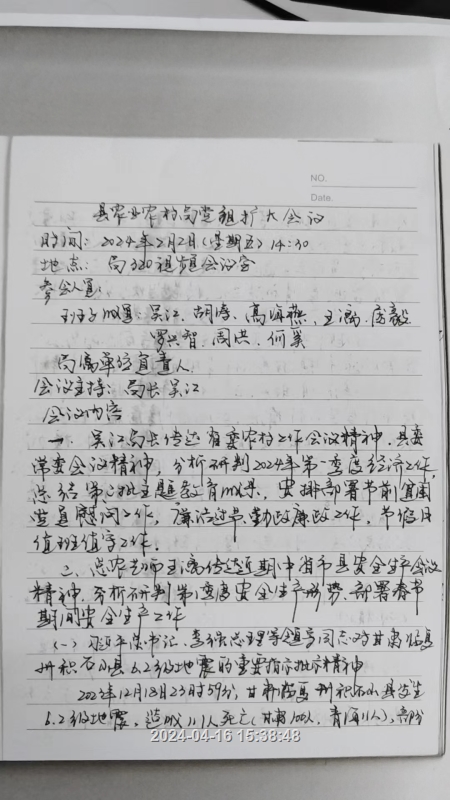 NO.
Date.
县农业农村局党组扩大会议
时间：2024年2月2日(星期五) 14:30
地点：局320视频会议室
参会人员：
班子成员：吴江、胡涛、高 燕、王 、 毅
罗兴智、周洪、何奚
局属单位负责人
会议主持：局长吴江
会议内容
一、吴江局长传达省委农村工作会议精神、县委
常委会议精神，分析研判2024年第一季度经济工作，
总结第二批主题教育成果，安排部署节前
党员慰问工作，廉洁过节、勤政廉政工作，节假日
值班值守工作。
二、总农艺师王 传达近期中省市县安全生产会议
精神，分析研判第一季度安全生产形势，部署春节
期间安全生产工作
(一) 习近平总书记、李强总理等领导同志对甘肃临夏
州积石山县6.2级地震的重要指示批示精神
2023年12月18日23时59分，甘肃临夏州积石山县发生
6.2级地震，造成111人死亡(甘肃100人，青海11人)，部分
2024-04-16 15:38:48